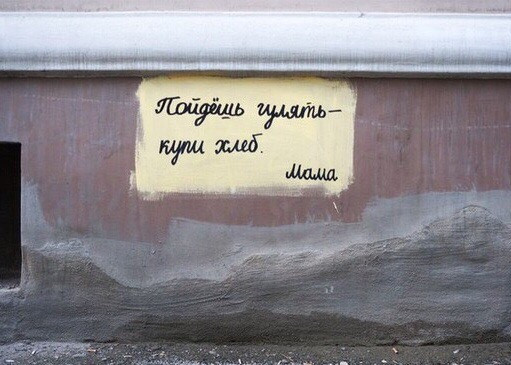 Пойдёшь гулять—
купи хлеб.
Мама